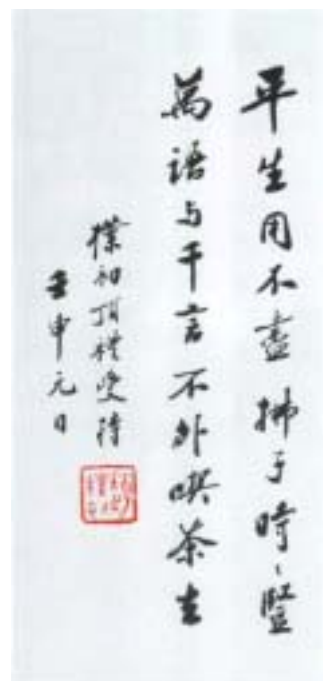 平生用不盡拂子時〻豎
萬語与千言不外喫茶去
樸初頂禮受持
壬申元日